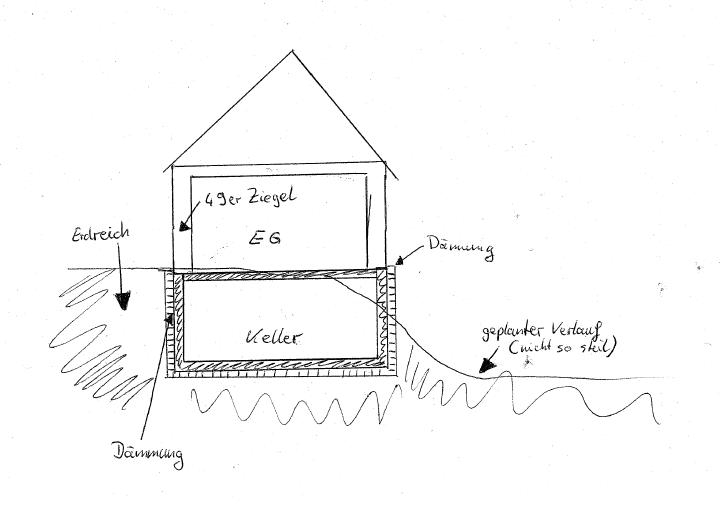 49er Ziegel
Erdreich
EG
Dämmung
geplanter Verlauf
(nicht so steil)
Keller
Dämmung